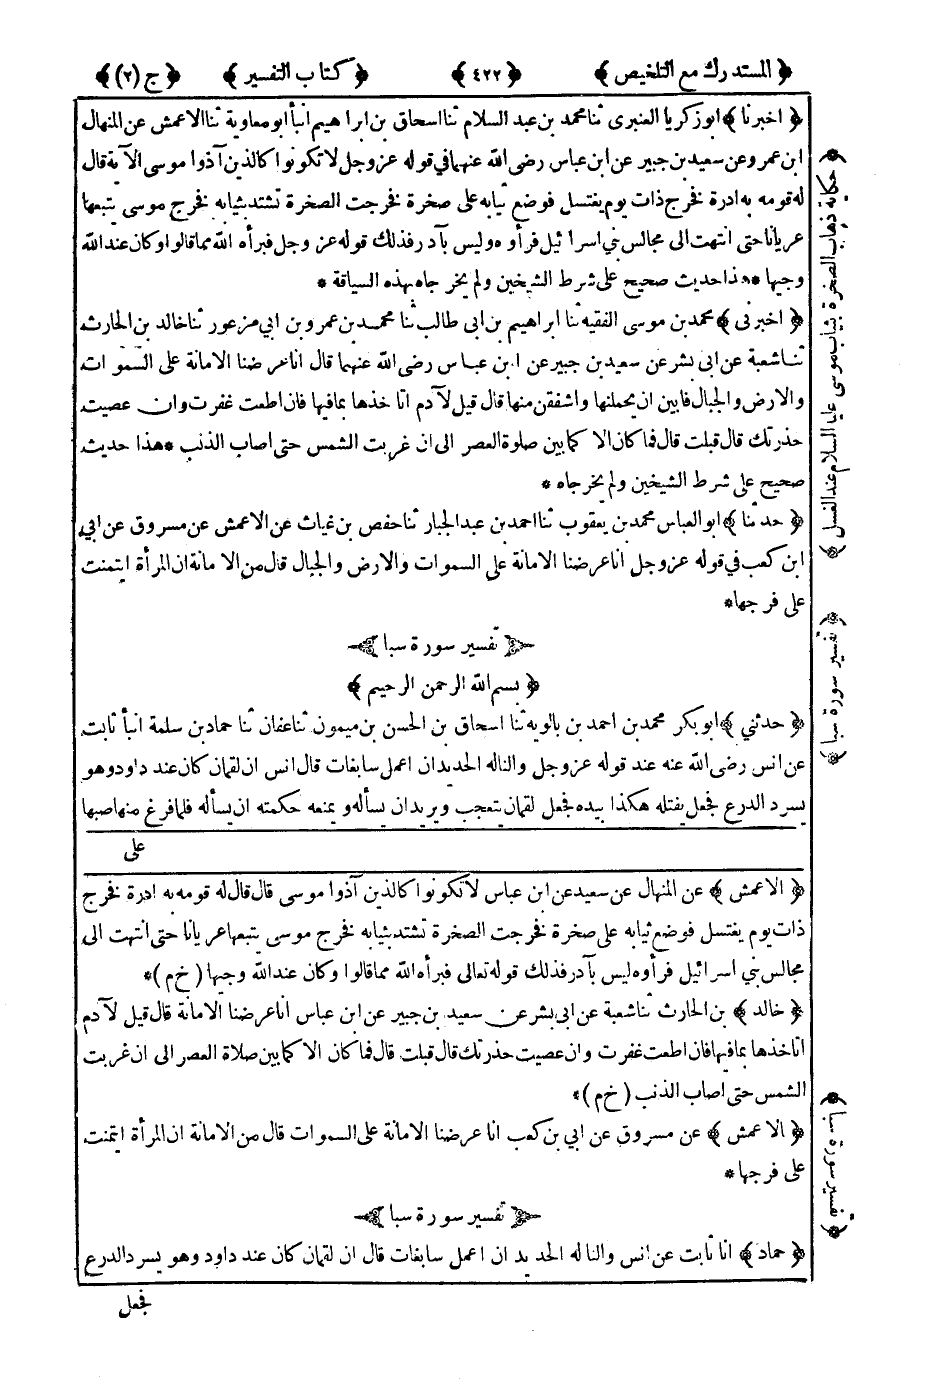 ﴿ المستدرك مع التلخيص ﴾ ﴿ ٤٢٢ ﴾ ﴿ كتاب التفسير ﴾ ﴿ ج (٢) ﴾
﴿ اخبرنا ﴾ ابو زكريا العنبرى ثنا محمد بن عبد السلام ثنا اسحاق بن ابراهيم انبأ ابو معاوية ثنا الاعمش عن المنهال
ابن عمرو عن سعيد بن جبير عن ابن عباس رضى الله عنهما في قوله عز وجل لا تكونوا كالذين آذوا موسى الآية قال
له قومه به ادرة فخرج ذات يوم يغتسل فوضع ثيابه على صخرة فخرجت الصخرة تشتد بثيابه فخرج موسى يتبعها
عريانا حتى انتهت الى مجالس بني اسرائيل فرأوه وليس بآدر فذلك قوله عز وجل فبرأه الله مما قالوا وكان عند الله
وجيها * هذا حديث صحيح على شرط الشيخين ولم يخرجاه بهذه السياقة *
﴿ اخبرنى ﴾ محمد بن موسى الفقيه ثنا ابراهيم بن ابى طالب ثنا محمد بن عمرو بن ابي مزعور ثنا خالد بن الحارث
ثنا شعبة عن ابى بشر عن سعيد بن جبير عن ابن عباس رضى الله عنهما قال انا عرضنا الامانة على السموات
والارض والجبال فابين ان يحملنها واشفقن منها قال قيل لآدم اتا خذها بما فيها فان اطعت غفرت وان عصيت
حذرتك قال قبلت قال فما كان الا كما بين صلوة العصر الى ان غربت الشمس حتى اصاب الذنب * هذا حديث
صحيح على شرط الشيخين ولم يخرجاه *
﴿ حدثنا ﴾ ابو العباس محمد بن يعقوب ثنا احمد بن عبد الجبار ثنا حفص بن غياث عن الاعمش عن مسروق عن ابي
ابن كعب في قوله عز وجل انا عرضنا الامانة على السموات والارض والجبال قال من الامانة ان المرأة ايتمنت
على فرجها *
تفسير سورة سبا
﴿ بسم الله الرحمن الرحيم ﴾
﴿ حدثني ﴾ ابو بكر محمد بن احمد بن بالويه ثنا اسحاق بن الحسن بن ميمون ثنا عفان ثنا حماد بن سلمة انبأ ثابت
عن انس رضى الله عنه عند قوله عز وجل والنا له الحديد ان اعمل سابغات قال انس ان لقمان كان عند داود وهو
يسرد الدرع فجعل يفتله هكذا بيده فجعل لقمان يتعجب ويريد ان يسأله ويمنعه حكمته ان يسأله فلما فرغ منها صبها
على
﴿ الاعمش ﴾ عن المنهال عن سعيد عن ابن عباس لا تكونوا كالذين آذوا موسى قال قال له قومه به ادرة فخرج
ذات يوم يغتسل فوضع ثيابه على صخرة فخرجت الصخرة تشتد بثيابه فخرج موسى يتبعها عريانا حتى انتهت الى
مجالس بني اسرائيل فرأوه ليس بآدر فذلك قوله تعالى فبرأه الله مما قالوا وكان عند الله وجيها ( خ م ) *
﴿ خالد ﴾ بن الحارث ثنا شعبة عن ابى بشر عن سعيد بن جبير عن ابن عباس انا عرضنا الامانة قال قيل لآدم
اتاخذها بما فيها فان اطعت غفرت وان عصيت حذرتك قال قبلت قال فما كان الا كما بين صلاة العصر الى ان غربت
الشمس حتى اصاب الذنب ( خ م ) *
﴿ الاعمش ﴾ عن مسروق عن ابي بن كعب انا عرضنا الامانة على السموات قال من الامانة ان المرأة ايتمنت
على فرجها *
تفسير سورة سبا
﴿ حماد ﴾ انا ثابت عن انس والنا له الحديد ان اعمل سابغات قال ان لقمان كان عند داود وهو يسرد الدرع
فجعل
﴿ حكاية ذهاب الصخرة بثياب موسى عليه السلام عند الغسل ﴾
﴿ تفسير سورة سبا ﴾
﴿ تفسير سورة سبا ﴾